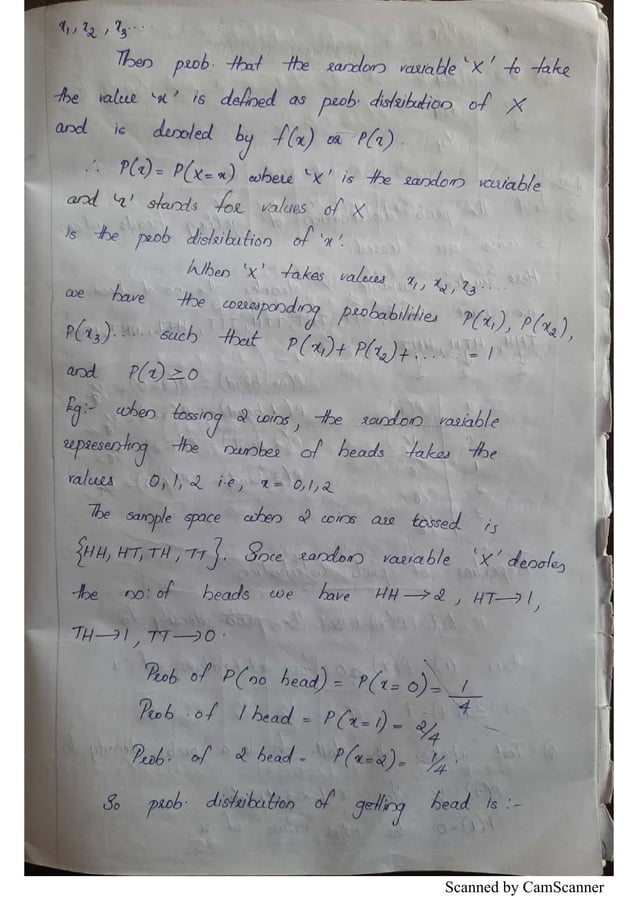 x₁, x₂, x₃....
Then prob. that the random variable 'X' to take
the value 'x' is defined as prob. distribution of X
and is denoted by f(x) or P(x).
∴ P(x) = P(X=x) where 'X' is the random variable
and 'x' stands for values of X
is the prob distribution of 'x'.
When 'X' takes values x₁, x₂, x₃....
we have the corresponding probabilities P(x₁), P(x₂),
P(x₃).... such that P(x₁)+ P(x₂)+...... = 1
and P(x) ≥ 0
Eg:- when tossing 2 coins, the random variable
representing the number of heads takes the
values 0, 1, 2 i.e, x = 0,1,2
The sample space when 2 coins are tossed is
{HH, HT, TH, TT}. Since random variable 'X' denotes
the no: of heads we have HH → 2, HT → 1,
TH → 1, TT → 0.
Prob. of P(no head) = P(x=0) = 1/4
Prob. of 1 head = P(x=1) = 2/4
Prob. of 2 head = P(x=2) = 1/4
So prob. distribution of getting head is :-
Scanned by CamScanner